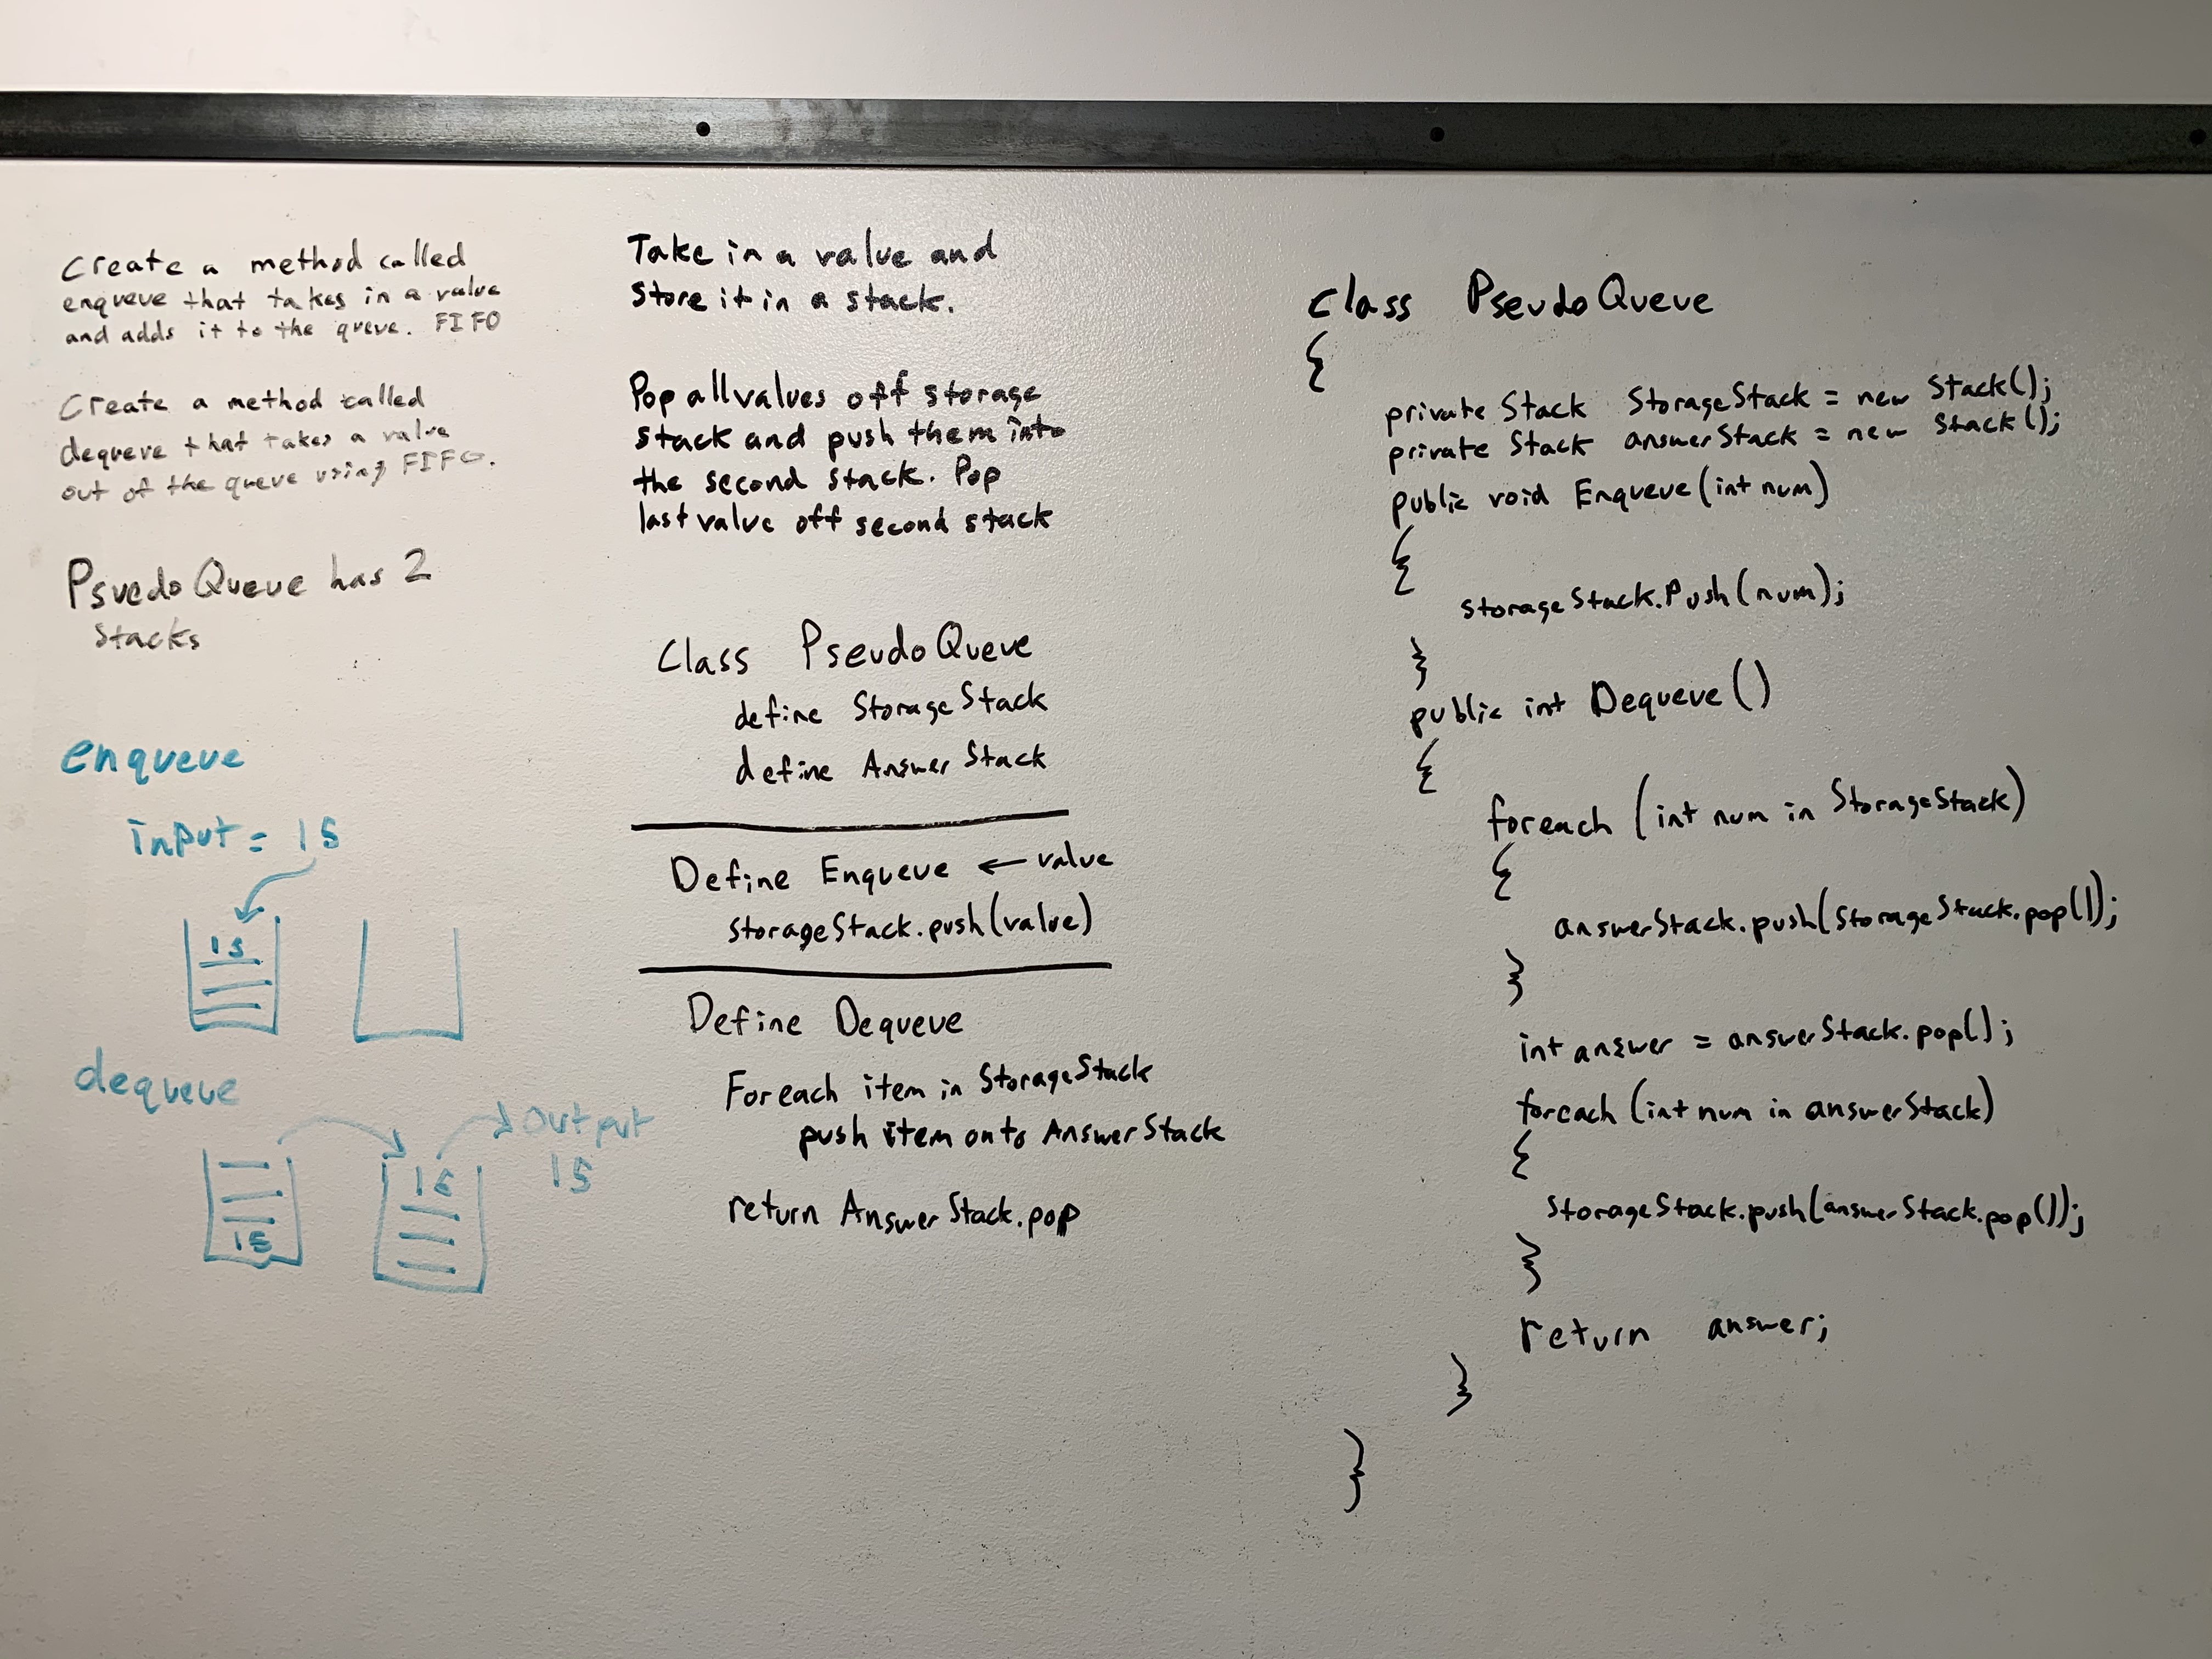 Create a method called
enqueue that takes in a value
and adds it to the queue. FIFO
Create a method called
dequeue that takes a value
out of the queue using FIFO.
PsuedoQueue has 2
Stacks
enqueue
input = 15
15
dequeue
output
15
15
15
Take in a value and
store it in a stack.
Pop all values off storage
stack and push them into
the second stack. Pop
last value off second stack
Class PseudoQueue
define StorageStack
define AnswerStack
Define Enqueue ← value
storageStack.push(value)
Define Dequeue
Foreach item in StorageStack
push item onto AnswerStack
return AnswerStack.pop
class PseudoQueue
{
private Stack StorageStack = new Stack();
private Stack answerStack = new Stack();
public void Enqueue(int num)
{
storageStack.Push(num);
}
public int Dequeue()
{
foreach (int num in StorageStack)
{
answerStack.push(StorageStack.pop());
}
int answer = answerStack.pop();
foreach (int num in answerStack)
{
StorageStack.push(answerStack.pop());
}
return answer;
}
}